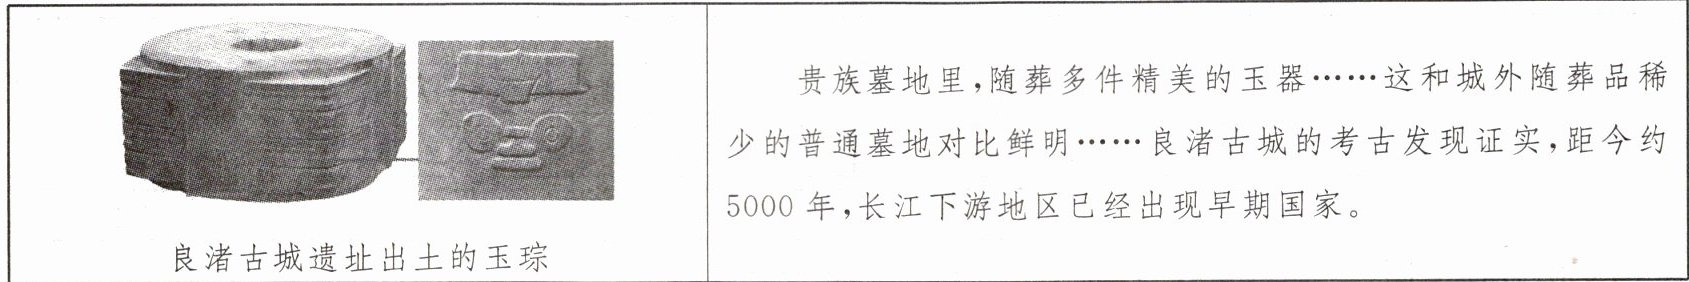 良渚古城遗址出土的玉琮
贵族墓地里,随葬多件精美的玉器……这和城外随葬品稀
少的普通墓地对比鲜明……良渚古城的考古发现证实,距今约
5000 年,长江下游地区已经出现早期国家。